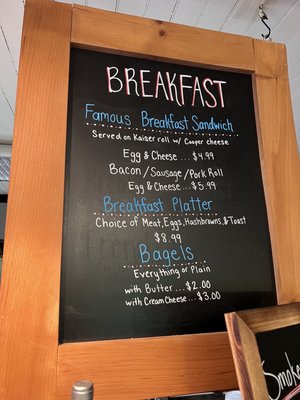 BREAKFAST
Famous Breakfast Sandwich
Served on Kaiser roll w/ Cooper cheese
Egg & Cheese ... $4.99
Bacon/Sausage/Pork Roll
Egg & Cheese ... $5.99
Breakfast Platter
Choice of Meat, Eggs, Hashbrowns, & Toast
$8.99
Bagels
Everything or Plain
with Butter ... $2.00
with Cream Cheese ... $3.00
Smoke